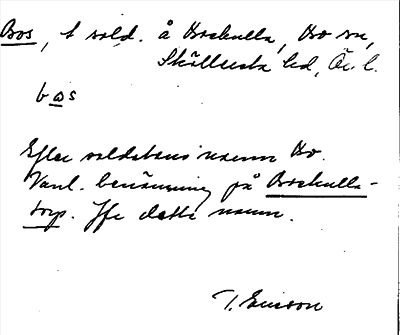 Bos, t sold. å Boskulla, Bo sn,
Skyllersta hd, Ör. l.
bos
Efter soldatens namn Bo.
Vanl. benämning på Boskulla-
torp. Jfr detta namn.
T. Ericson